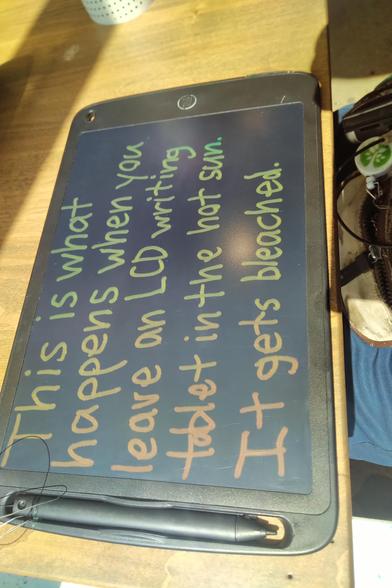 This is what
happens when you
leave an LCD writing
tablet in the hot sun.
It gets bleached.